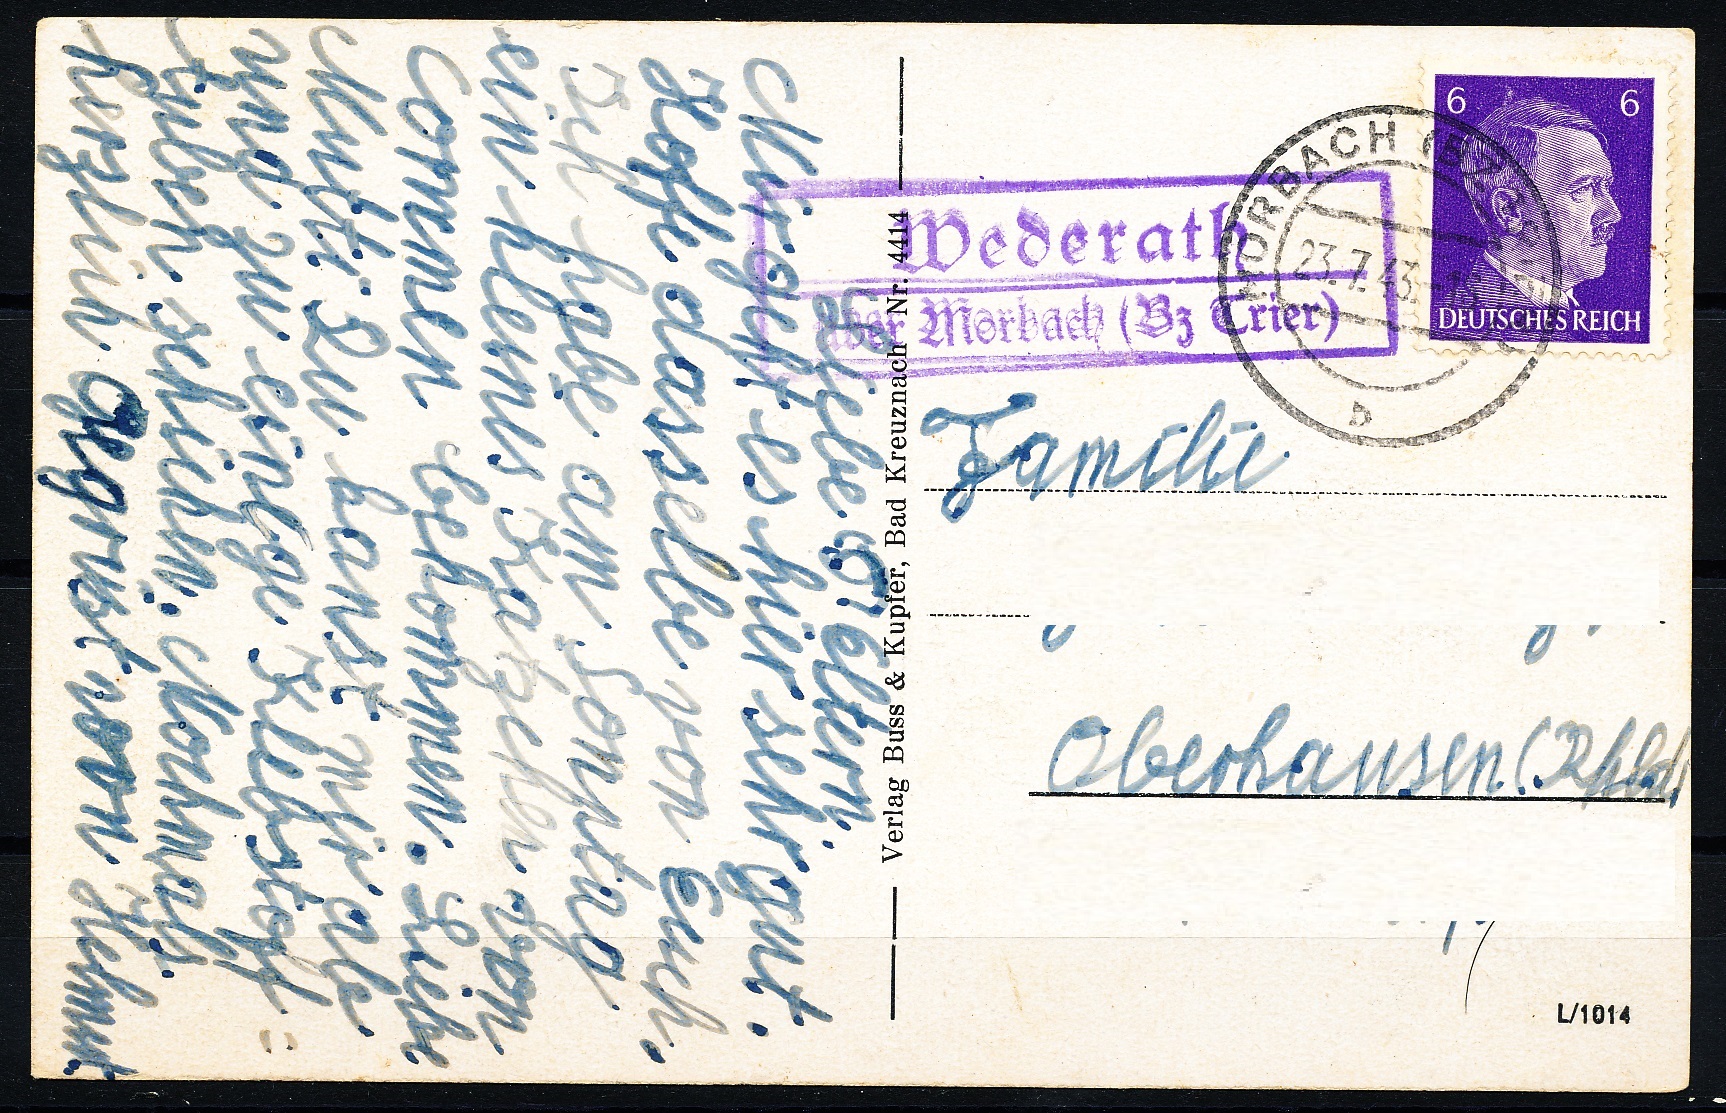 Liebe Eltern.
Mir geht es hier sehr gut.
Hoffe dasselbe von Euch.
Ich habe am Sontag
ein kleines Katzchen von
Commen bekommen. Liebe
Mutti Du kanst mir ale
und zu einige Klebstoff
herzlich Gegrust von Helmut.
Verlag Buss & Kupfer, Bad Kreuznach Nr. 4414
Wederath
über Morbach (Bz Trier)
MORBACH (BZ TRIER)
23.7.43.
b
6 6
DEUTSCHES REICH
Familie
Oberhausen. (Rhld)
L/1014